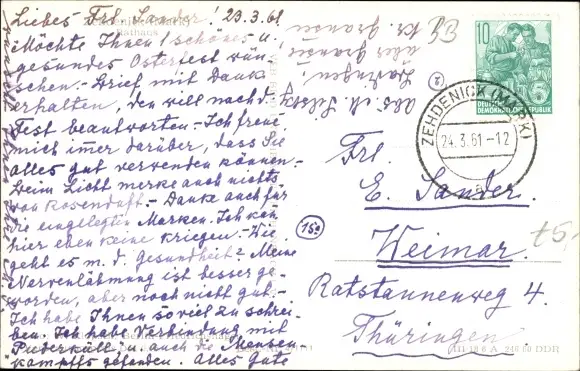 Liebes Frl. Sander! 23.3.61
Möchte Ihnen schönes u.
gesundes Osterfest wün
schen. – Brief mit Dank
erhalten, den will nach d.
Fest beantworten. – Ich freue
mich immer darüber, dass Sie
alles gut verwenden können. –
Beim Licht merke auch nichts
von Rosenduft. – Danke auch für
die eingelegten Marken. Ich kan
hier eben keine kriegen. – Wie
geht es m. d. Gesundheit? Meine
Nervenlähmung ist besser ge-
worden, aber noch nicht gut. –
Ich habe Ihnen so viel zu schrei-
ben. Ich habe Verbindung mit
u. auch die
gefanden. Alles Gute
Rathaus
über Gransee
Kr. Gransee
10
DEUTSCHE
DEMOKRATISCHE REPUBLIK
ZEHDENICK (MARK)
24.3.61-12
Frl.
E. Sander
Weimar
Ratstannenweg 4
Thüringen
15a
t5,-
DDR